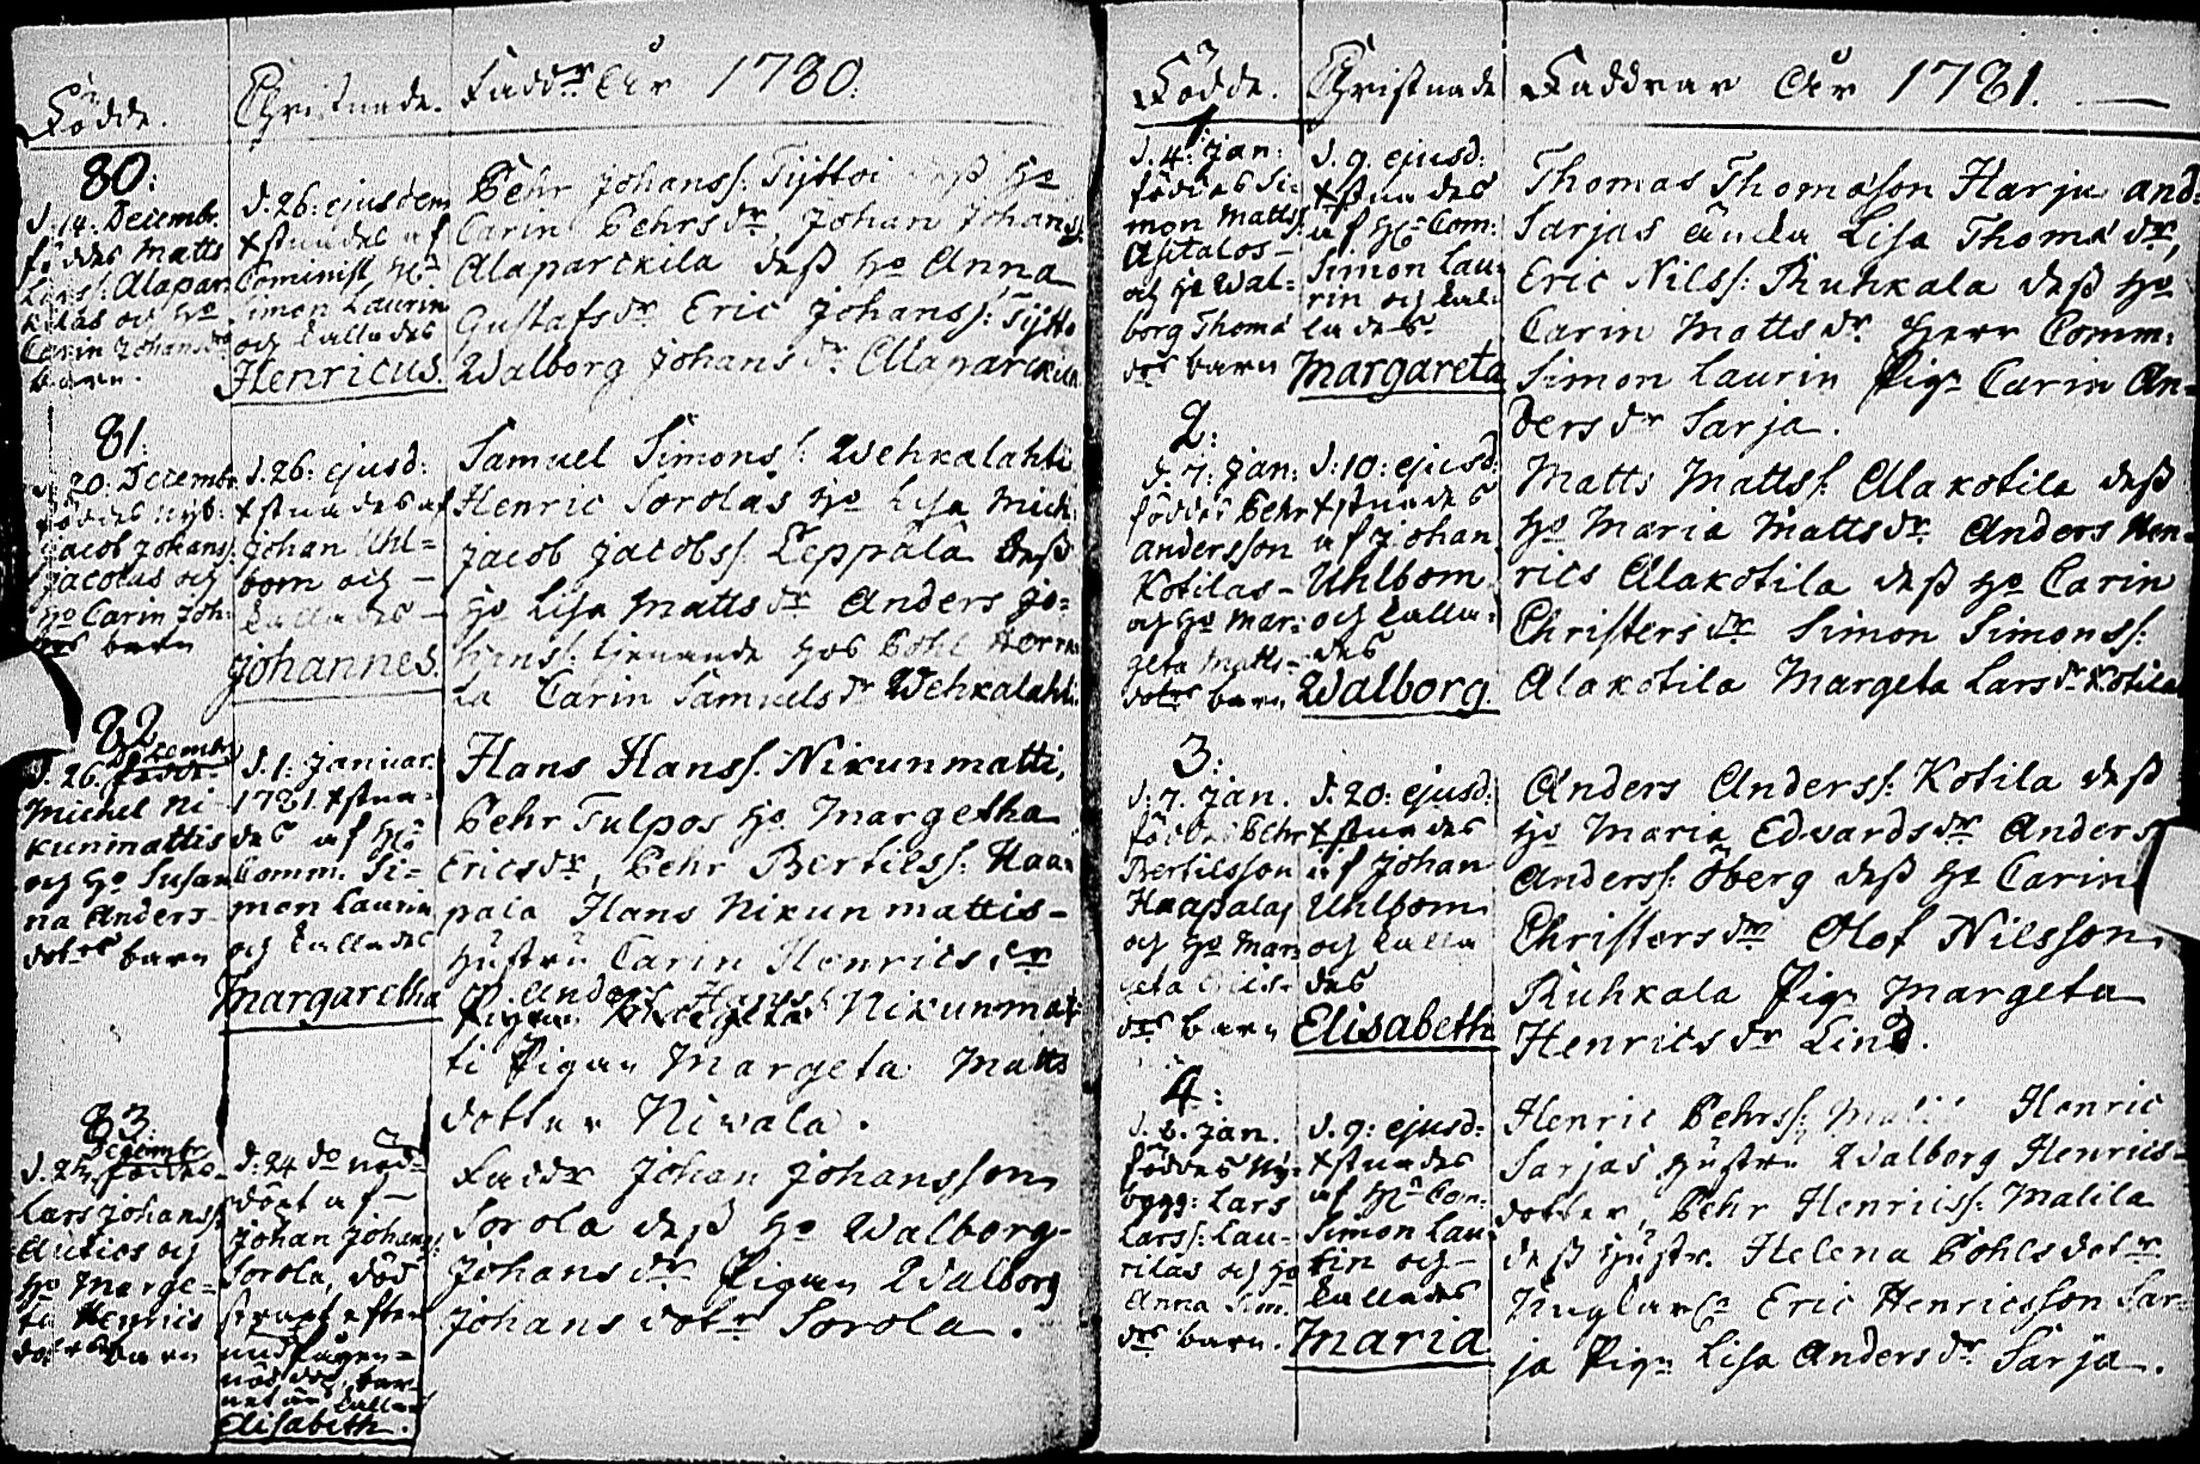 Födde. Christnade. Faddr År 1780:
80:
d. 14. Decembr.
föddes Matts
Larss: Alapar
kilas och ho
Carin Johansdrs
barn.
d. 26: ejusdem
Xstnades af
Cominist Hr
Simon Laurin
och kallades
Henricus.
Pehr Johanss: Tyttoi deß ho
Carin Pehrsdr, Johan Johanss
Alaparckila deß ho Anna
Gustafsdr Eric Johanss: Tytto
Walborg Johansdr Alaparckila
81:
d. 20. Decembr
föddes nyb:
Jacob Johanss.
Jacolas och
ho Carin Joh:
drs barn
d. 26: ejusd:
Xstnades af
Johan Uhl=
bom och –
kallades –
Johannes.
Samuel Simonss: Wehkalahti
Henric Sorolas ho Lisa Mich:
Jacob Jacobss: Leppälä deß
ho Lisa Mattsdr Anders Jo=
hanss: tjenande hos Pohl
la Carin Samuelsdr Wehkalahti.
82
Decembr
d. 26. föddes
Michel Ni
kunmattis
och ho Susan
na Anders
dotrs barn
d. 1: Januar:
1781 Xstna=
des af Hr
Comm. Si=
mon Laurin
och kallades
Margaretha
Hans Hanss. Nikunmatti,
Pehr Tulpos ho Margetha
Ericsdr, Pehr Bertilss: Haa=
pala Hans Nikunmattis –
hustru Carin Henricsdr
Anders Hanss
Pigan Margeta Nikunmat
ti Pigan Margeta Matts
dotter Niwala.
83:
Decembr
d. 24. föddes
Lars Johanss:
Autios och
ho Marge=
ta Henrics
dotrs barn
d: 24 do nöd
döpt af –
Johan Johanss:
Sorola, död
straxt efter
undfången=
nöddop, bar
net är kallat
Elisabeth.
Faddr Johan Johansson
Sorola deß ho Walborg
Johansdr Pigan Walborg
Johansdotr Sorola.
Födde. Christnade Faddrar År 1781. —
1
d. 4: Jan:
föddes Si=
mon Matts:
Ahtalos –
och ho Wal=
borg Thomæ
drs barn
d. 9. ejusd:
Xstnades
af Hr Com:
Simon Lau=
rin och kal=
lades
Margareta
Thomas Thomæson Harju and:
Sarjas änka Lisa Thomædr,
Eric Nilss: Ruhkala deß ho
Carin Mattsdr Herr Comm:
Simon Laurin Pign Carin An=
dersdr Sarja.
2:
d. 7: Jan:
föddes Pehr
Andersson
Kotilas –
och ho Mar=
geta Matts=
dotrs barn
d: 10: ejusd:
Xstnades
af Johan
Uhlbom
och kalla=
des
Walborg.
Matts Mattss: Alakotila deß
ho Maria Mattsdr Anders Hen=
rics Alakotila deß ho Carin
Christersdr Simon Simonss:
Alakotila Margeta Larsdr Kotila
3:
d: 7. Jan.
föddes Pehr
Bertilsson
Haapalas
och ho Mar=
geta Erics=
drs barn
d. 20: ejusd:
Xstnades
af Johan
Uhlbom
och kalla
des
Elisabeth
Anders Anderss: Kotila deß
ho Maria Edwardsdr Anders
Anderss: Öberg deß ho Carin
Christersdr Olof Nilsson
Ruhkala Pign Margeta
Henricsdr Lind.
4:
d. 8. Jan.
föddes Ny=
bygg: Lars
Larss: Lau=
rilas och ho
Anna Sim.
drs barn.
d. 9: ejusd:
Xstnades
af Hr Com.
Simon Lau=
rin och –
kallades
Maria
Henric Pehrss: Henric
Sarjas hustru Walborg Henrics=
dotter, Pehr Henricss: Malila
deß hustr. Helena Pohlsdotr
Ynglarn Eric Henricsson Sar=
ja Pign Lisa Andersdr Sarja.